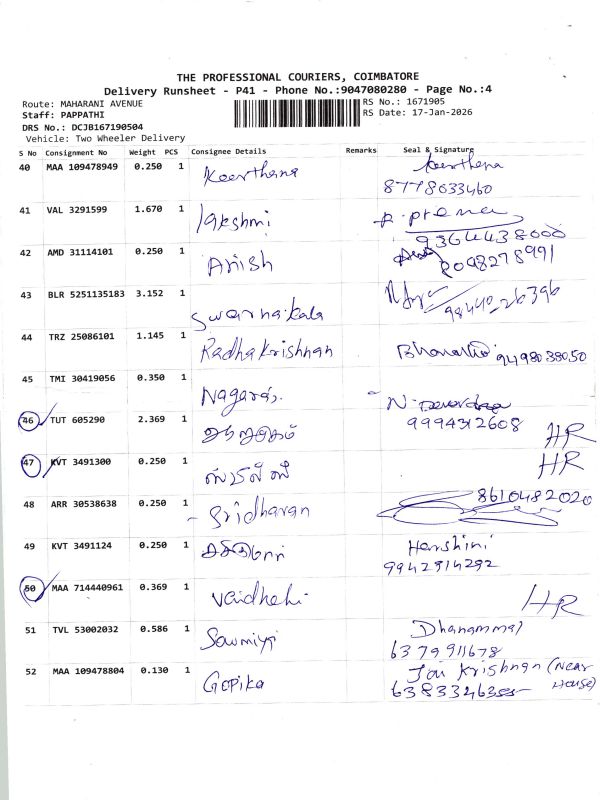 THE PROFESSIONAL COURIERS, COIMBATORE
Delivery Runsheet - P41 - Phone No.:9047080280 - Page No.:4
Route: MAHARANI AVENUE
Staff: PAPPATHI
DRS No.: DCJB167190504
Vehicle: Two Wheeler Delivery
RS No.: 1671905
RS Date: 17-Jan-2026
S No Consignment No Weight PCS Consignee Details Remarks Seal & Signature
40 MAA 109478949 0.250 1 Keerthana Keerthana
8778633460
41 VAL 3291599 1.670 1 lakshmi R. prema
9364438000
42 AMD 31114101 0.250 1 Anish
43 BLR 5251135183 3.152 1 Swarnakala
44 TRZ 25086101 1.145 1 Radhakrishnan
45 TMI 30419056 0.350 1 Nagaraj.
9994312608
46 TUT 605290 2.369 1 ஆறுமுகம் HR
47 KVT 3491300 0.250 1 HR
48 ARR 30538638 0.250 1 Sridharan 8610482020
49 KVT 3491124 0.250 1 Harshini
9942914292
50 MAA 714440961 0.369 1 Vaidhehi HR
51 TVL 53002032 0.586 1 Sowmiya Dhanammal
6379911678
52 MAA 109478804 0.130 1 Gopika Jai Krishnan (Near House)